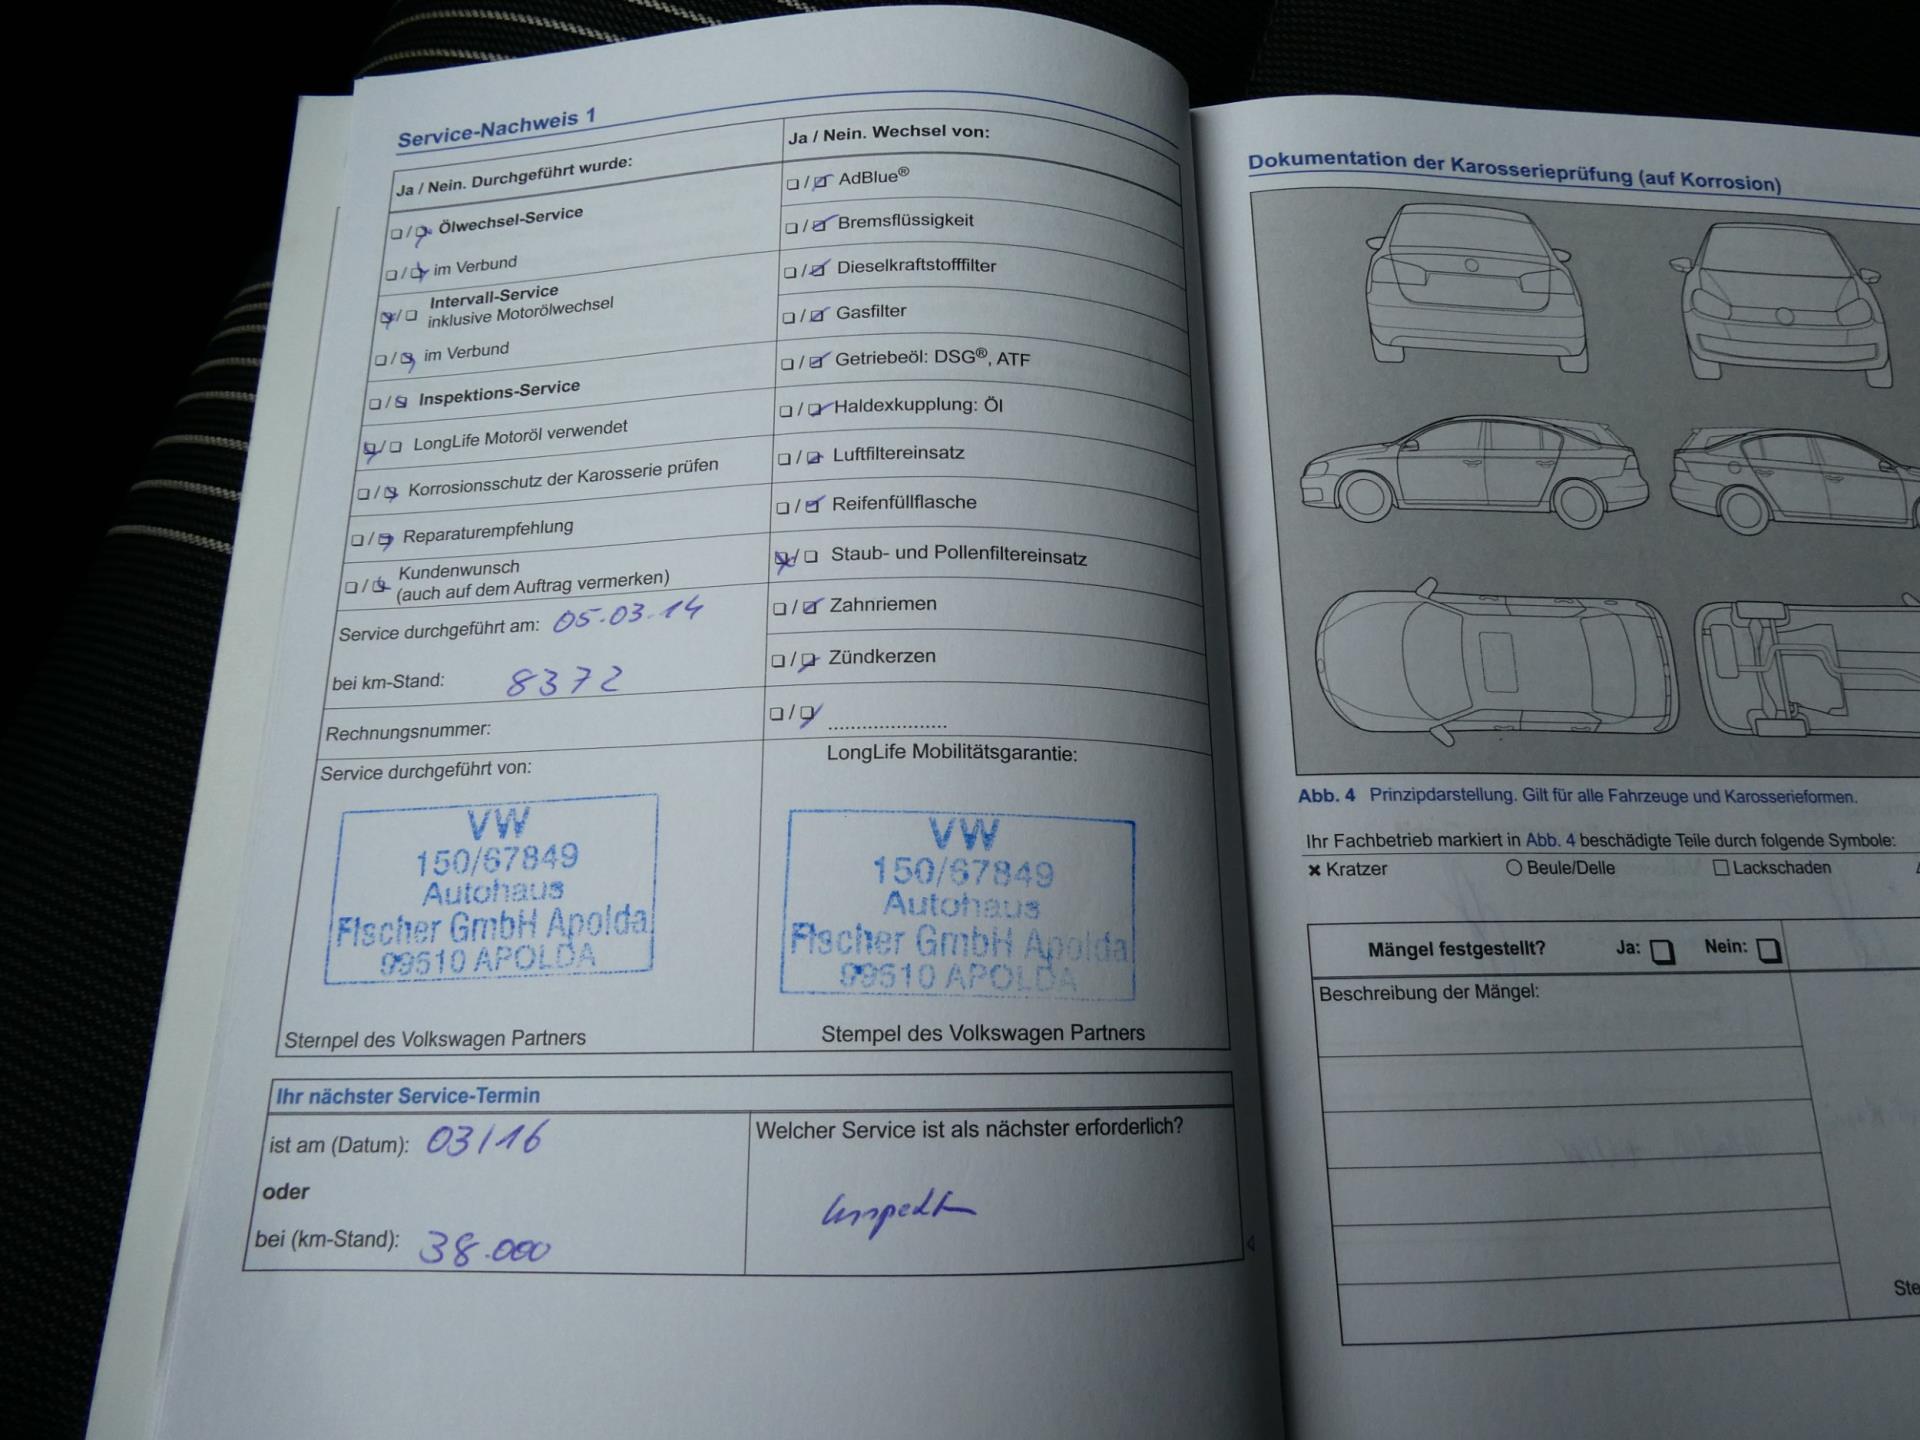 Service-Nachweis 1
Ja / Nein. Durchgeführt wurde:
Ölwechsel-Service
im Verbund
Intervall-Service
inklusive Motorölwechsel
im Verbund
Inspektions-Service
LongLife Motoröl verwendet
Korrosionsschutz der Karosserie prüfen
Reparaturempfehlung
Kundenwunsch
(auch auf dem Auftrag vermerken)
Service durchgeführt am: 05.03.14
bei km-Stand: 8372
Rechnungsnummer:
Service durchgeführt von:
VW
150/67849
Autohaus
Fischer GmbH Apolda
99510 APOLDA
Stempel des Volkswagen Partners
Ja / Nein. Wechsel von:
AdBlue®
Bremsflüssigkeit
Dieselkraftstofffilter
Gasfilter
Getriebeöl: DSG®, ATF
Haldexkupplung: Öl
Luftfiltereinsatz
Reifenfüllflasche
Staub- und Pollenfiltereinsatz
Zahnriemen
Zündkerzen
.....................
LongLife Mobilitätsgarantie:
VW
150/67849
Autohaus
Fischer GmbH Apolda
99510 APOLDA
Stempel des Volkswagen Partners
Ihr nächster Service-Termin
ist am (Datum): 03/16
oder
bei (km-Stand): 38.000
Welcher Service ist als nächster erforderlich?
Dokumentation der Karosserieprüfung (auf Korrosion)
Abb. 4 Prinzipdarstellung. Gilt für alle Fahrzeuge und Karosserieformen.
Ihr Fachbetrieb markiert in Abb. 4 beschädigte Teile durch folgende Symbole:
× Kratzer ○ Beule/Delle □ Lackschaden
Mängel festgestellt? Ja: Nein:
Beschreibung der Mängel:
Ste